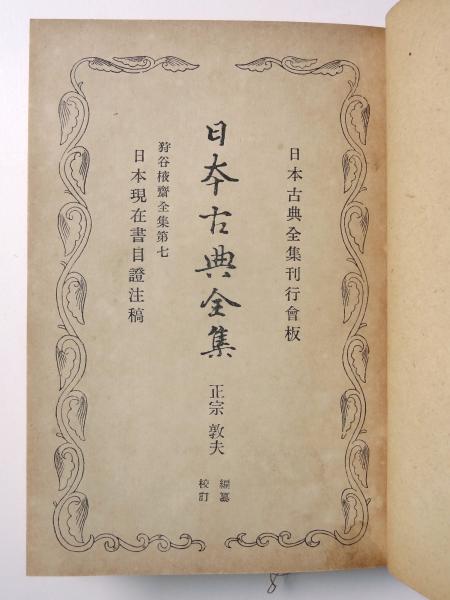 日本古典全集刊行會板
日本古典全集
正宗敦夫
編纂
校訂
狩谷棭齋全集第七
日本現在書目證注稿